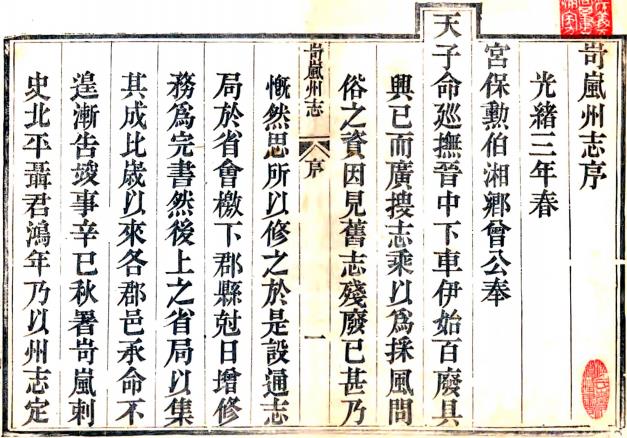 岢嵐州志序
光緒三年春
宮保勲伯湘鄉曾公奉
天子命廵撫晉中下車伊始百廢具
興已而廣搜志乘以爲採風問
俗之資因見舊志殘廢已甚乃
岢嵐州志
序
一
慨然思所以修之於是設通志
局於省會檄下郡縣尅日增修
務爲完書然後上之省局以集
其成比歲以來各郡邑承命不
遑漸告竣事辛巳秋署岢嵐刺
史北平聶君鴻年乃以州志定